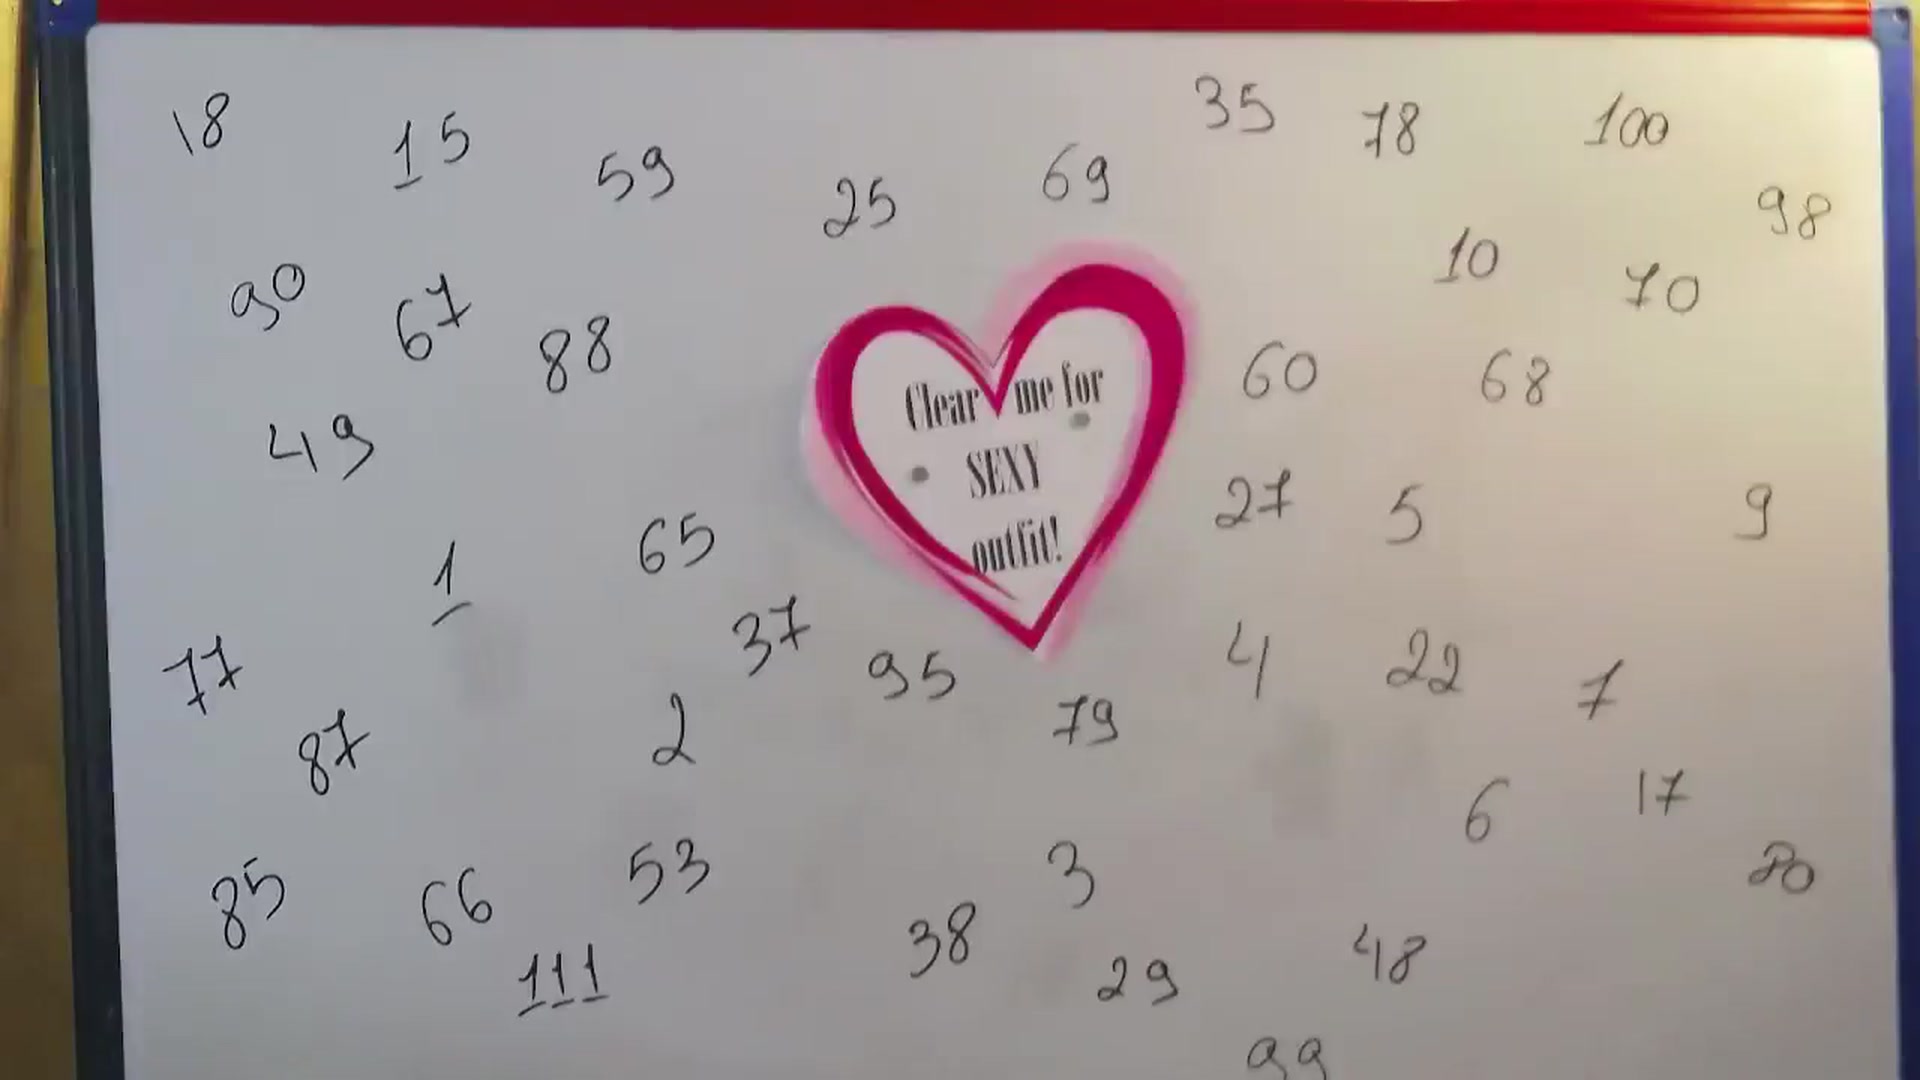 18
15
59
25
69
35
78
100
98
90
67
88
10
70
49
Clear me for
SEXY
outfit!
60
68
1
65
27
5
9
77
87
37
95
2
79
4
22
7
6
17
85
66
53
3
111
38
29
48
99